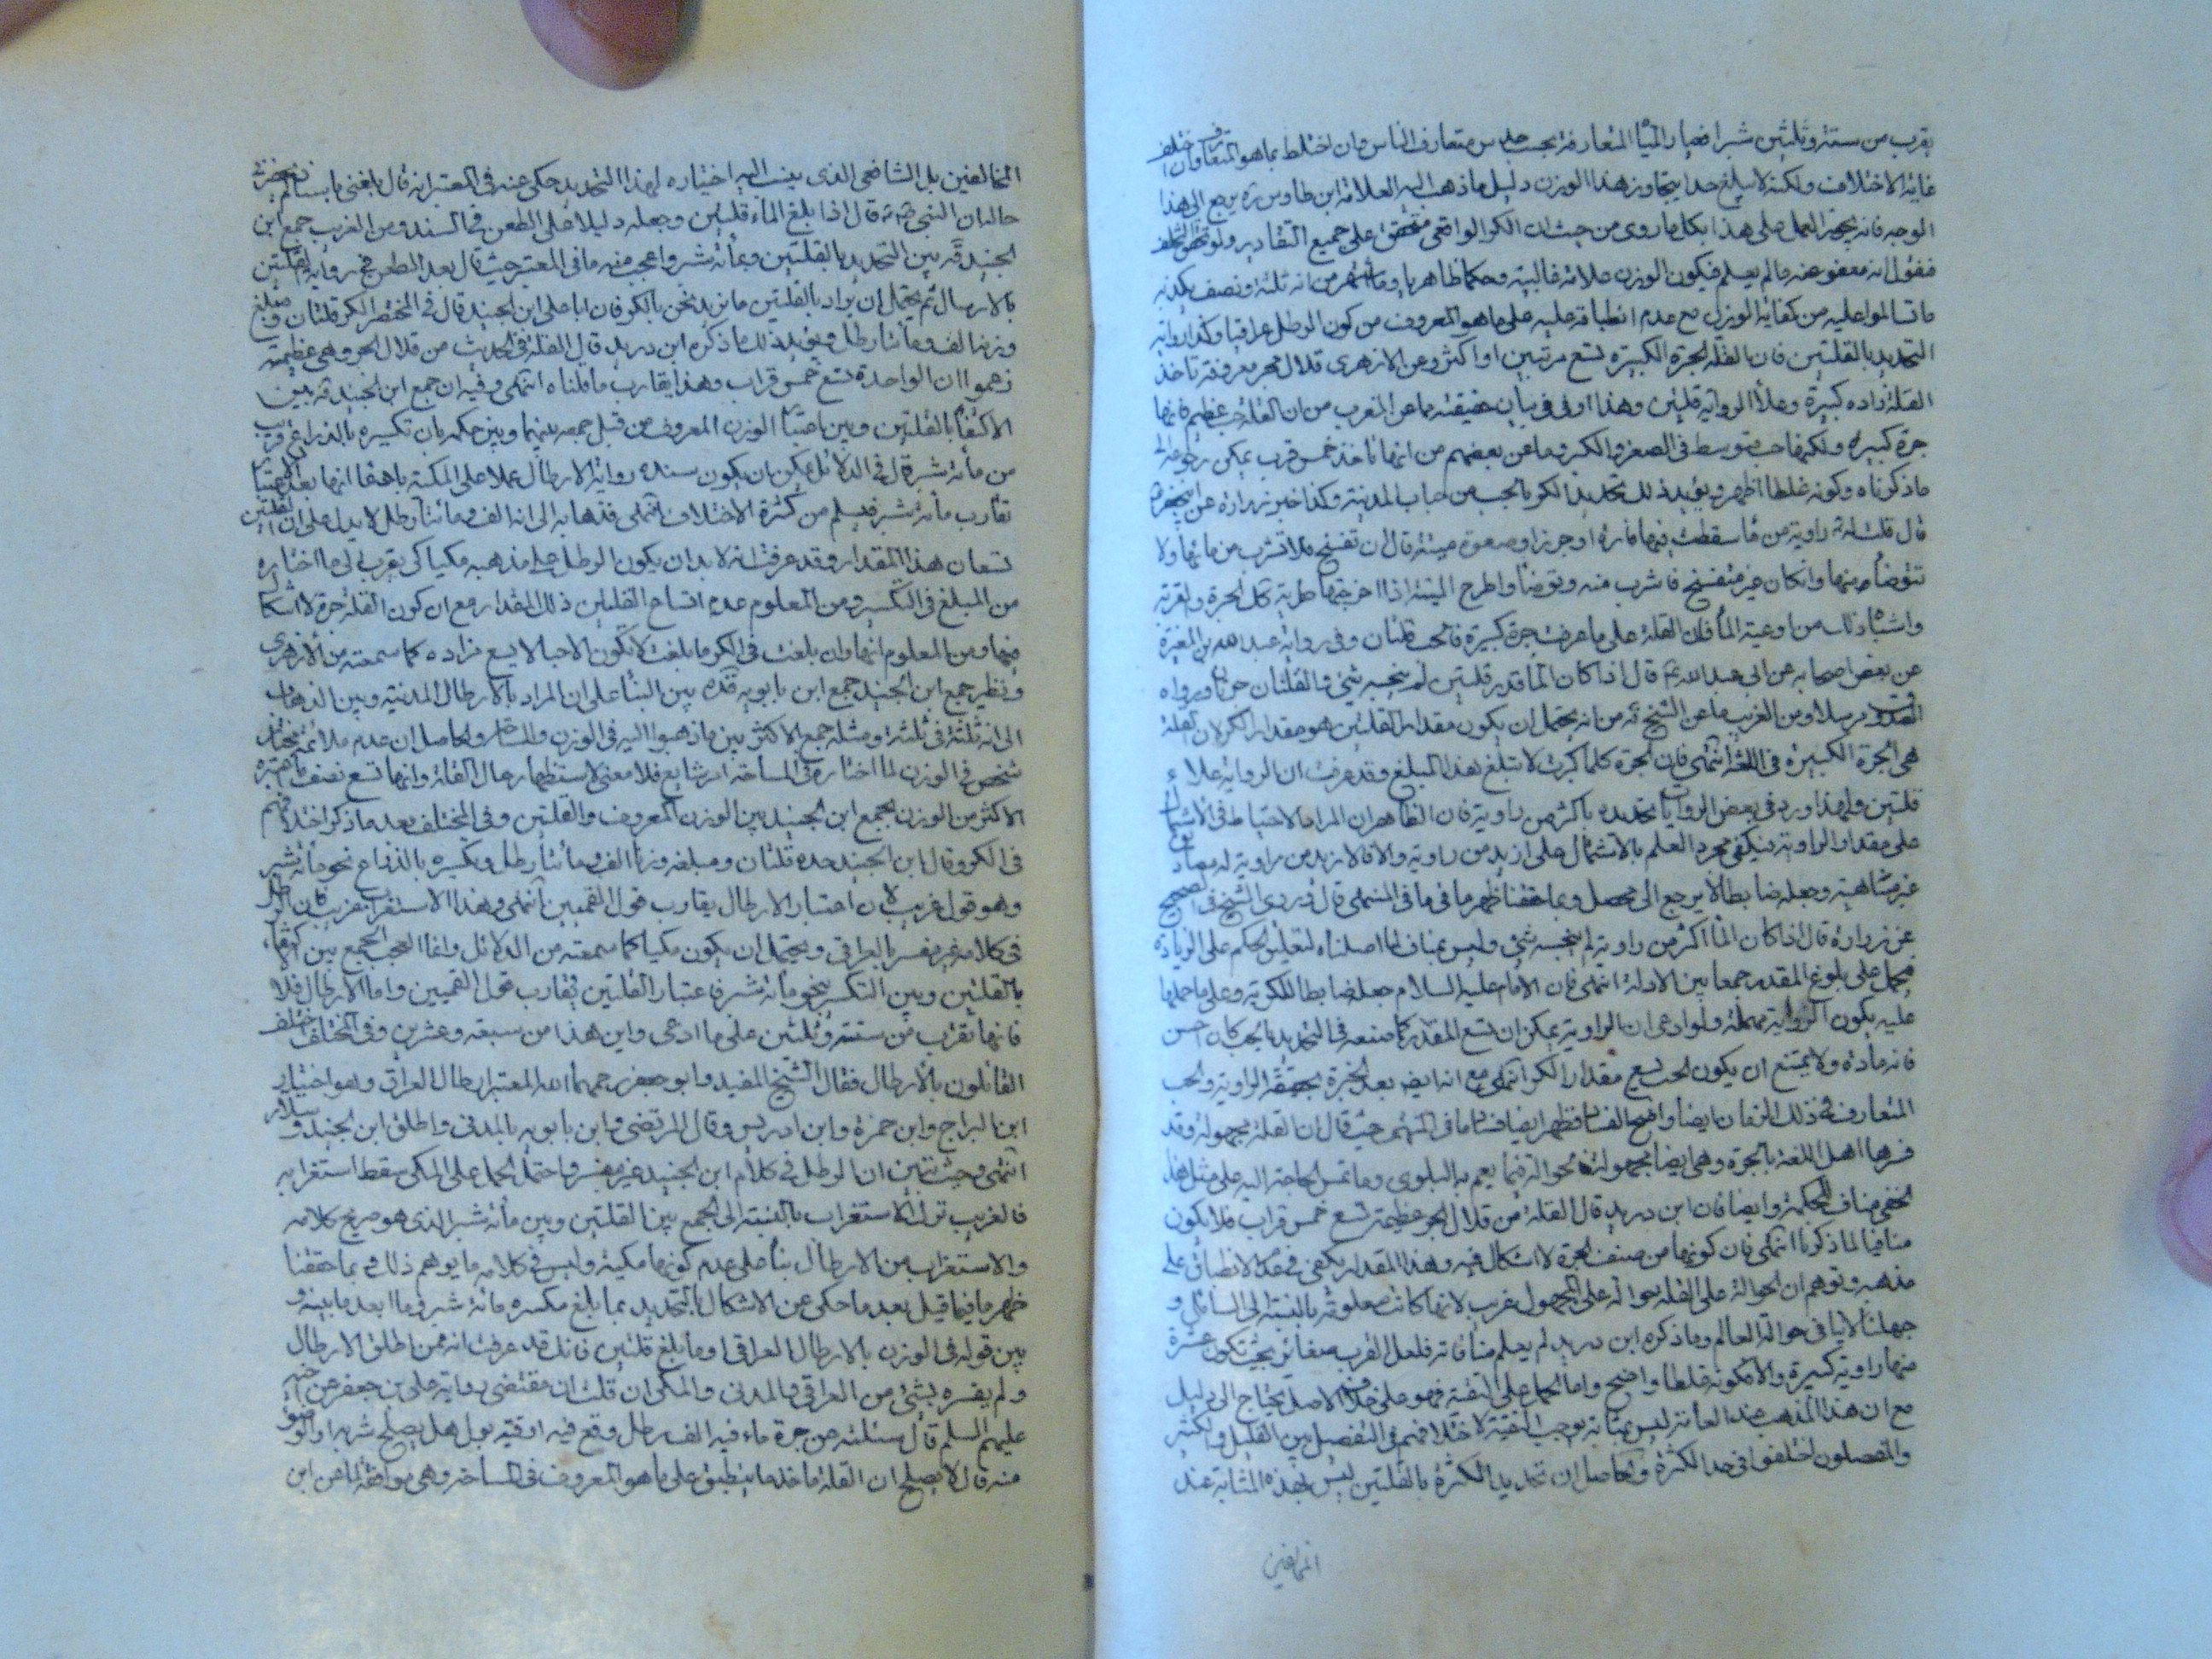 يقرب من ستة وثلثين شبرا فعيار المياه المتعارفة بحسب حدس متعارف الناس وان اختلط بما هو المتعارف وان اختلف
غاية الاختلاف ولكنه لا يبلغ حدا يتجاوز هذا الوزن دليل ما ذهب اليه العلامة ابن طاوس ره يرجع الى هذا
الوجه فانه يجوز العمل على هذا بكل ما روى من حيث ان الكر الواقعى متحقق على جميع التقادير ولو تحقق التخلف
فنقول انه معفو عنه مالم يعلم فيكون الوزن علامة غالبية وحكما ظاهريا انه ثلثة ونصف يكذبه
ما تسالموا عليه من كفاية الوزن مع عدم انطباقه عليه على ما هو المعروف من كون الرطل عراقيا وكذا رواية
التحديد بالقلتين فان القلة الجرة الكبيرة تسع مرتين او اكثر وعن الازهرى قلال هجر معروفة تاخذ
القلة مزاده كبيرة وملأ الراوية قلتين وهذا اوفى فى بيان حقيقته مما عن المغرب من ان القلة حب عظيم فانها
جرة كبيرة ولكنها حب متوسط فى الصغر والكبر وما عن بعضهم من انها تاخذ خمس قرب يمكن رجوعه الى
ما ذكرناه وكونه غلطا اظهر ويؤيد ذلك تحديد الكر بالحب من حباب المدينة وكذا خبر زرارة عن ابى جعفر
قال قلت له راوية من ماء سقطت فيها فارة او جرذ او صعوة ميتة قال ان تفسخ فلا تشرب من مائها ولا
تتوضأ منها وان كان غير متفسخ فاشرب منه وتوضأ واطرح الميتة اذا اخرجتها طرية وكك الجرة والقربة
واشباه ذلك من اوعية الماء فان القلة على ما عرفت جرة كبيرة فالحب قلتان وفى رواية عبد الله بن المغيرة
عن بعض اصحابه عن ابى عبد الله ع قال اذا كان الماء قدر قلتين لم ينجسه شئ والقلتان جرتان ورواه
الصدوق مرسلا ومن الغريب ما عن الشيخ ره من انه يحتمل ان يكون مقدار القلتين هو مقدار الكر لان القلة
هى الجرة الكبيرة فى اللغة انتهى فان الجرة كلما كبرت لا تبلغ هذا المبلغ وقد عرفت ان الراوية ملاء
قلتين ولهذا ورد فى بعض الروايات تحديده باكثر من راوية فان الظاهر ان المراد الاحتياط فى الاشتمال
على مقدار الراوية فيكفى مجرد العلم بالاشتمال على ازيد من راوية والا فالازيد من راوية له مصاديق
غير متناهية وجعله ضابطا لا يرجع الى محصل وبما حققنا ظهر ما فى ما فى المنتهى قال وروى الشيخ فى الصحيح
عن زرارة قال اذا كان الماء اكثر من راوية لم ينجسه شئ وليس بمناف لما اصلناه لتعليق الحكم على الزيادة
فيحمل على بلوغ المقدر جمعا بين الادلة انتهى فان الامام عليه السلام جعله ضابطا للكرية وعلى ما حمله
عليه يكون الرواية مهملة ولو ادعى ان الراوية يمكن ان تسع المقدر كما صنعه فى التحديد بالحب كان احسن
فانه مادة ولا يمتنع ان يكون الحب يسع مقدار الكر انتهى مع انه ايضا بعد الخبرة بحقيقة الراوية والحب
المتعارف فى ذلك الزمان ايضا واضح الفساد فظهر ايضا فساد ما فى المنتهى حيث قال ان القلة مجهولة وقد
فسرها اهل اللغة بالجرة وهى ايضا مجهولة فالحوالة فيما يعم به البلوى وما تمس الحاجة اليه على مثل هذا
الخفى مناف للحكمة وايضا فان ابن دريد قال القلة من قلال هجر عظيمة تسع خمس قراب فلا يكون
منافيا لما ذكرنا انتهى فان كونها من صنف الجرة لا اشكال فيه وهذا المقدار يكفى فى عدم الانطباق على
مذهبه وتوهم ان الحوالة على القلة حوالة على المجهول غريب لانها كانت معلومة بالنسبة الى السائل و
جهلنا لا ينافى حوالة العالم وما ذكره ابن دريد لم يعلم منافاته فلعل القرب صغائر بحيث تكون عشرة
منها راوية كبيرة والا فكونه غلطا واضح واما الحمل على التقية فهو على خلاف الاصل يحتاج الى دليل
مع ان هذا المذهب عند العامة ليس بمثابة يوجب التقية لاختلافهم فى التفصيل بين القليل والكثير
والمفصلون اختلفوا فى حد الكثرة والحاصل ان تحديد الكثرة بالقلتين ليس بهذه المثابة عند
المخالفين
المخالفين بل الشافعى الذى ينسب اليه اختياره لهذا التحديد حكى عنه فى المعتبر انه قال بلغنى باسناد لم يحضرنى
حاله ان النبى ص قال اذا بلغ الماء قلتين وجعله دليلا على الطعن فى السند ومن الغريب جمع ابن
الجنيد قه بين التحديد بالقلتين وبمأة شبر واعجب منه ما فى المعتبر حيث قال بعد الطعن فى رواية القلتين
بالارسال ثم يحتمل ان يراد بالقلتين ما نريد نحن بالكر فان ابا على ابن الجنيد قال فى المختصر الكر قلتان ومبلغ
وزنه الف ومأتا رطل ويؤيد ذلك ما ذكره ابن دريد قال القلة فى الحديث من قلال هجر وهى عظيمة
زعموا ان الواحدة تسع خمس قراب وهذا يقارب ما قلناه انتهى وفيه ان جمع ابن الجنيد قه بين
الاكتفاء بالقلتين وبين اعتبار الوزن المعروف من قبل جمعه بينهما وبين حكمه بان تكسيره بالذراع قريب
من مأة شبر قال فى الدلائل يمكن ان يكون سنده رواية الارطال عملا على المكية باهقا انها بعد الاعتبار
تقارب مأة شبر فيسلم من كثرة الاختلاف انتهى فذهابه الى انه الف ومائتا رطل لا يدل على ان القلتين
تسعان هذا المقدار وقد عرفت انه لا بد ان يكون الرطل على مذهبه مكيا كى يقرب الى ما اختاره
من المبلغ فى التكسير ومن المعلوم عدم اتساع القلتين ذلك المقدار مع ان كون القلة جرة لا اشكال
فيها ومن المعلوم انها وان بلغت فى الكبر ما بلغت لا تكون الا حبا لا يسع مزاده كما سمعته من الازهرى
ونظير جمع ابن الجنيد جمع ابن بابويه قده بين البناء على ان المراد بالارطال المدنية وبين الذهاب
الى انه ثلثة فى ثلثة ومثله جمع الاكثر بين ما ذهبوا اليه فى الوزن والمساحة والحاصل ان عدم ملائمة مختار
شخص فى الوزن لما اختاره فى المساحة امر شايع فلا معنى لاستظهار حال القلة وانها تسع نصف ما اعتبره
الاكثر من الوزن بجمع ابن الجنيد بين الوزن المعروف والقلتين وفى المختلف بعد ما ذكر اختلافهم
فى الكر وقال ابن الجنيد حده قلتان ومبلغه وزنا الف ومائتا رطل وتكسيره بالذراع نحو مأة شبر
وهو قول غريب لان اعتبار الارطال يقارب قول القميين انتهى وهذا الاستغراب غريب فان الرطل
فى كلامه غير مفسر بالعراقى ويحتمل ان يكون مكيا كما سمعته من الدلائل وانما العجب الجمع بين اكتفائه
بالقلتين وبين التكسير بنحو مأة شبر فاعتبار القلتين يقارب قول القميين واما الارطال فلا
فانها تقرب من ستة وثلثين على ما ادعى واين هذا من سبعة وعشرين وفى المختلف اختلف
القائلون بالارطال فقال الشيخ المفيد وابو جعفر رحمهما الله المعتبر ارطال العراق وهو اختيار
ابن البراج وابن حمزة وابن ادريس وقال المرتضى وابن بابويه بالمدنى واطلق ابن الجنيد وسلار
انتهى وحيث تبين ان الرطل فى كلام ابن الجنيد غير مفسر واحتمل الحمل على المكى سقط استغرابه
فالغريب ترك الاستغراب بالنسبة الى الجمع بين القلتين وبين مأة شبر الذى هو صريح كلامه
والاستغراب من الارطال بناء على عدم كونها مكية وليس فى كلامه ما يوهم ذلك وبما حققنا
ظهر ما فيما قيل بعد ما حكى عن الاشكال بالتحديد بما بلغ مكسره مأة شبر وما ابعد ما بينه و
بين قوله فى الوزن بالارطال العراقى او ما بلغ قلتين فانك قد عرفت انه ممن اطلق الارطال
ولم يفسره بشئ من العراقى والمدنى والمكى ان قلت ان مقتضى رواية على بن جعفر عن اخيه
عليهم السلم قال سئلته عن جرة ماء فيه الف رطل وقع فيه اوقية بول هل يصلح شربه او الوضوء
منه قال لا يصلح ان القلة ماخذها ينطبق على ما هو المعروف فى المساحة وهى موافقة لما عن ابن